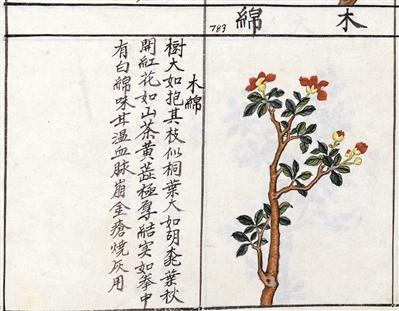 木綿
木綿
樹大如抱其枝似桐葉大如胡桃葉秋
開紅花如山茶黃蕊極厚結实如拳中
有白綿味甘温血脉崩金瘡燒灰用